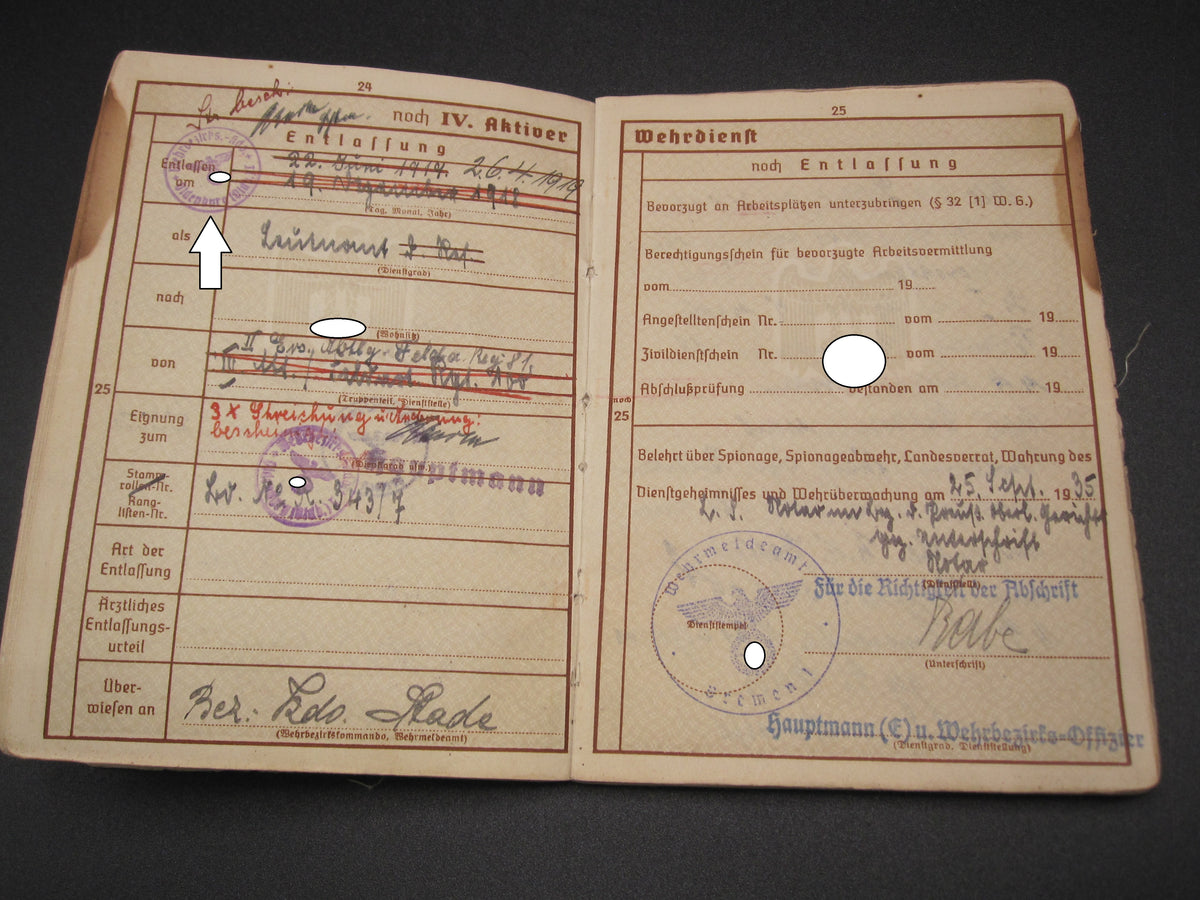 24
noch IV. Aktiver
Entlassung
Entlassen
am
22. Juni 1917. 26.4.1919
19. 1918
(Tag, Monat, Jahr)
als
Leutnant d. Res.
(Dienstgrad)
nach
(Wohnsitz)
von
II Ers. Abtlg. Feldа. Regt 81,
(Truppenteil, Dienststelle)
25
Eignung
zum
3 x Streichung u. Änderung:
(Dienstgrad usw.)
Hauptmann
Stamm-
rollen-Nr.
Rang-
listen-Nr.
Art der
Entlassung
Ärztliches
Entlassungs-
urteil
Über-
wiesen an
Bez. Kdo. Stade
(Wehrbezirkskommando, Wehrmeldeamt)
25
Wehrdienst
noch Entlassung
Bevorzugt an Arbeitsplätzen unterzubringen (§ 32 [1] W. G.)
Berechtigungsschein für bevorzugte Arbeitsvermittlung
vom 19
Angestelltenschein Nr. vom 19
Zivildienstschein Nr. vom 19
Abschlußprüfung bestanden am 19
noch
25
Belehrt über Spionage, Spionageabwehr, Landesverrat, Wahrung des
Dienstgeheimnisses und Wehrüberwachung am 25. Sept. 1935
L. S. Notar im Bez. d. Preuß. Oberl. Gerichts
gez. Unterschrift
Notar
(Dienststelle)
Für die Richtigkeit der Abschrift
Wehrmeldeamt
Dienststempel
Bremen 1
Rabe
(Unterschrift)
Hauptmann (E) u. Wehrbezirks-Offizier
(Dienstgrad, Dienststellung)